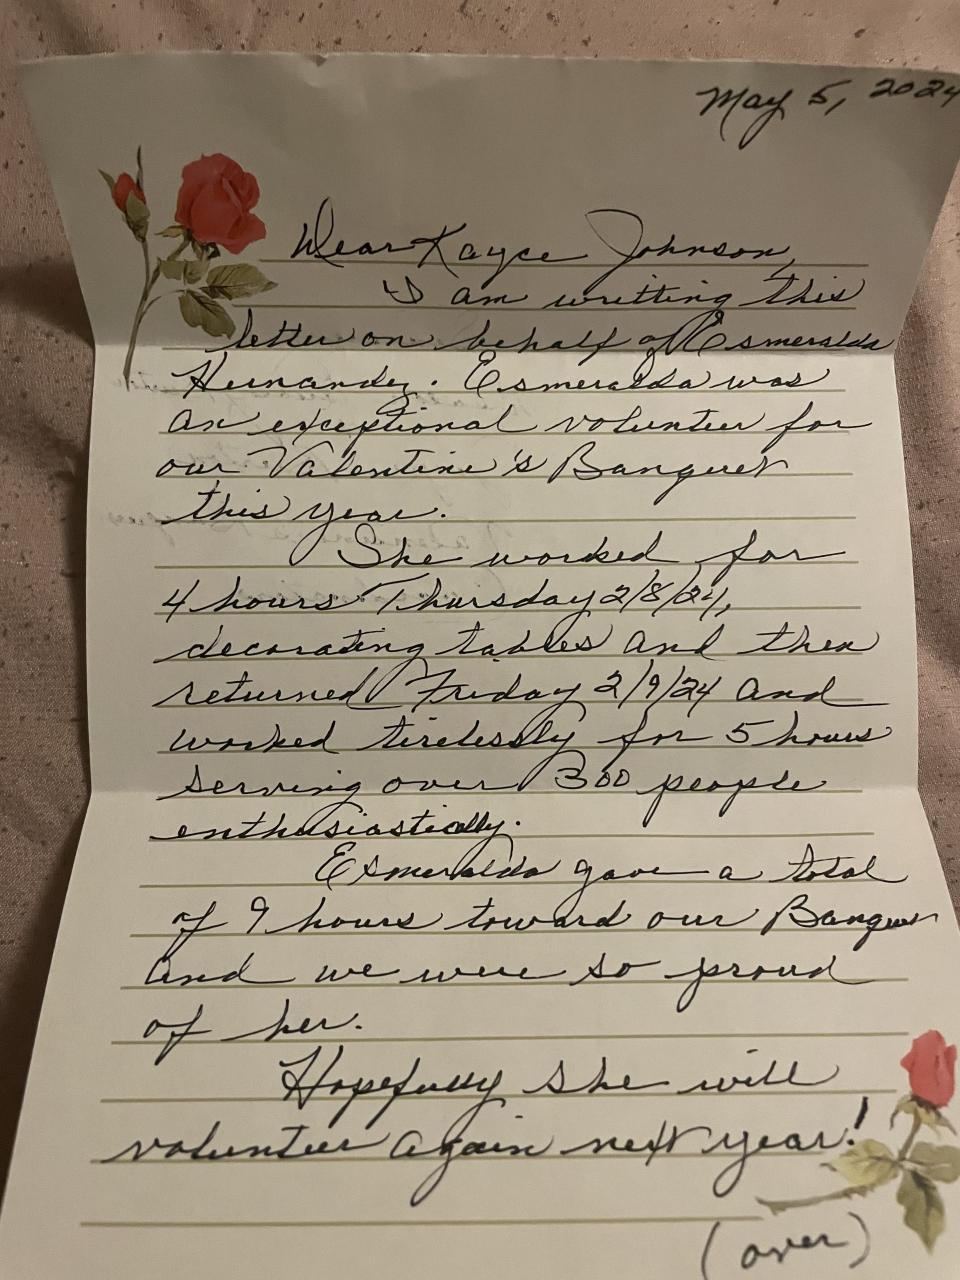 May 5, 2024
Dear Kayce Johnson,
I am writting this
letter on behalf of Esmeralda
Hernandez. Esmeralda was
an exceptional volunteer for
our Valentine's Banquet
this year.
She worked for
4 hours Thursday 2/8/24,
decorating tables and then
returned Friday 2/9/24 and
worked tirelessly for 5 hours
serving over 300 people
enthusiastically.
Esmeralda gave a total
of 9 hours toward our Banquet
and we were so proud
of her.
Hopefully she will
volunteer again next year!
(over)